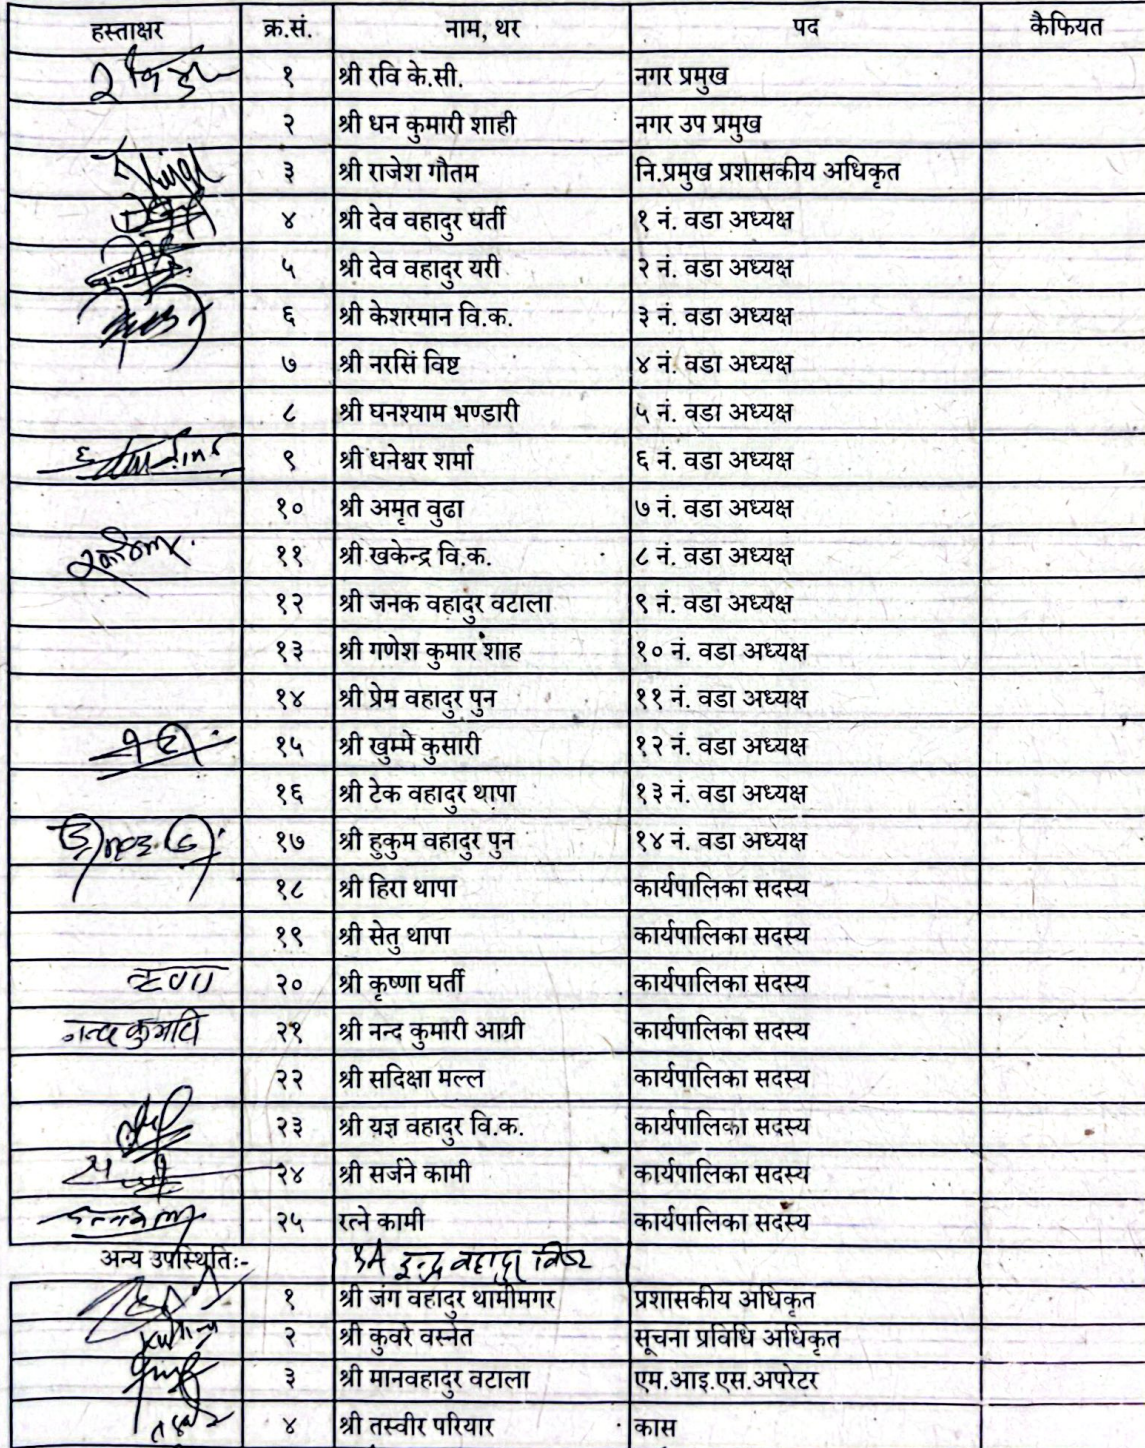 हस्ताक्षर क्र.सं. नाम, थर पद कैफियत
१ श्री रवि के.सी. नगर प्रमुख
२ श्री धन कुमारी शाही नगर उप प्रमुख
३ श्री राजेश गौतम नि.प्रमुख प्रशासकीय अधिकृत
४ श्री देव वहादुर घर्ती १ नं. वडा अध्यक्ष
५ श्री देव वहादुर यरी २ नं. वडा अध्यक्ष
६ श्री केशरमान वि.क. ३ नं. वडा अध्यक्ष
७ श्री नरसिं विष्ट ४ नं. वडा अध्यक्ष
८ श्री घनश्याम भण्डारी ५ नं. वडा अध्यक्ष
९ श्री धनेश्वर शर्मा ६ नं. वडा अध्यक्ष
१० श्री अमृत वुढा ७ नं. वडा अध्यक्ष
११ श्री खकेन्द्र वि.क. ८ नं. वडा अध्यक्ष
१२ श्री जनक वहादुर वटाला ९ नं. वडा अध्यक्ष
१३ श्री गणेश कुमार शाह १० नं. वडा अध्यक्ष
१४ श्री प्रेम वहादुर पुन ११ नं. वडा अध्यक्ष
१५ श्री खुम्मे कुसारी १२ नं. वडा अध्यक्ष
१६ श्री टेक वहादुर थापा १३ नं. वडा अध्यक्ष
१७ श्री हुकुम वहादुर पुन १४ नं. वडा अध्यक्ष
१८ श्री हिरा थापा कार्यपालिका सदस्य
१९ श्री सेतु थापा कार्यपालिका सदस्य
२० श्री कृष्णा घर्ती कार्यपालिका सदस्य
नन्द कुमारी २१ श्री नन्द कुमारी आग्री कार्यपालिका सदस्य
२२ श्री सदिक्षा मल्ल कार्यपालिका सदस्य
२३ श्री यज्ञ वहादुर वि.क. कार्यपालिका सदस्य
२४ श्री सर्जने कामी कार्यपालिका सदस्य
२५ रत्ने कामी कार्यपालिका सदस्य
अन्य उपस्थितिः- इन्द्र वहादुर
१ श्री जंग वहादुर थामीमगर प्रशासकीय अधिकृत
२ श्री कुवरे वस्नेत सूचना प्रविधि अधिकृत
३ श्री मानवहादुर वटाला एम.आइ.एस.अपरेटर
४ श्री तस्वीर परियार कास